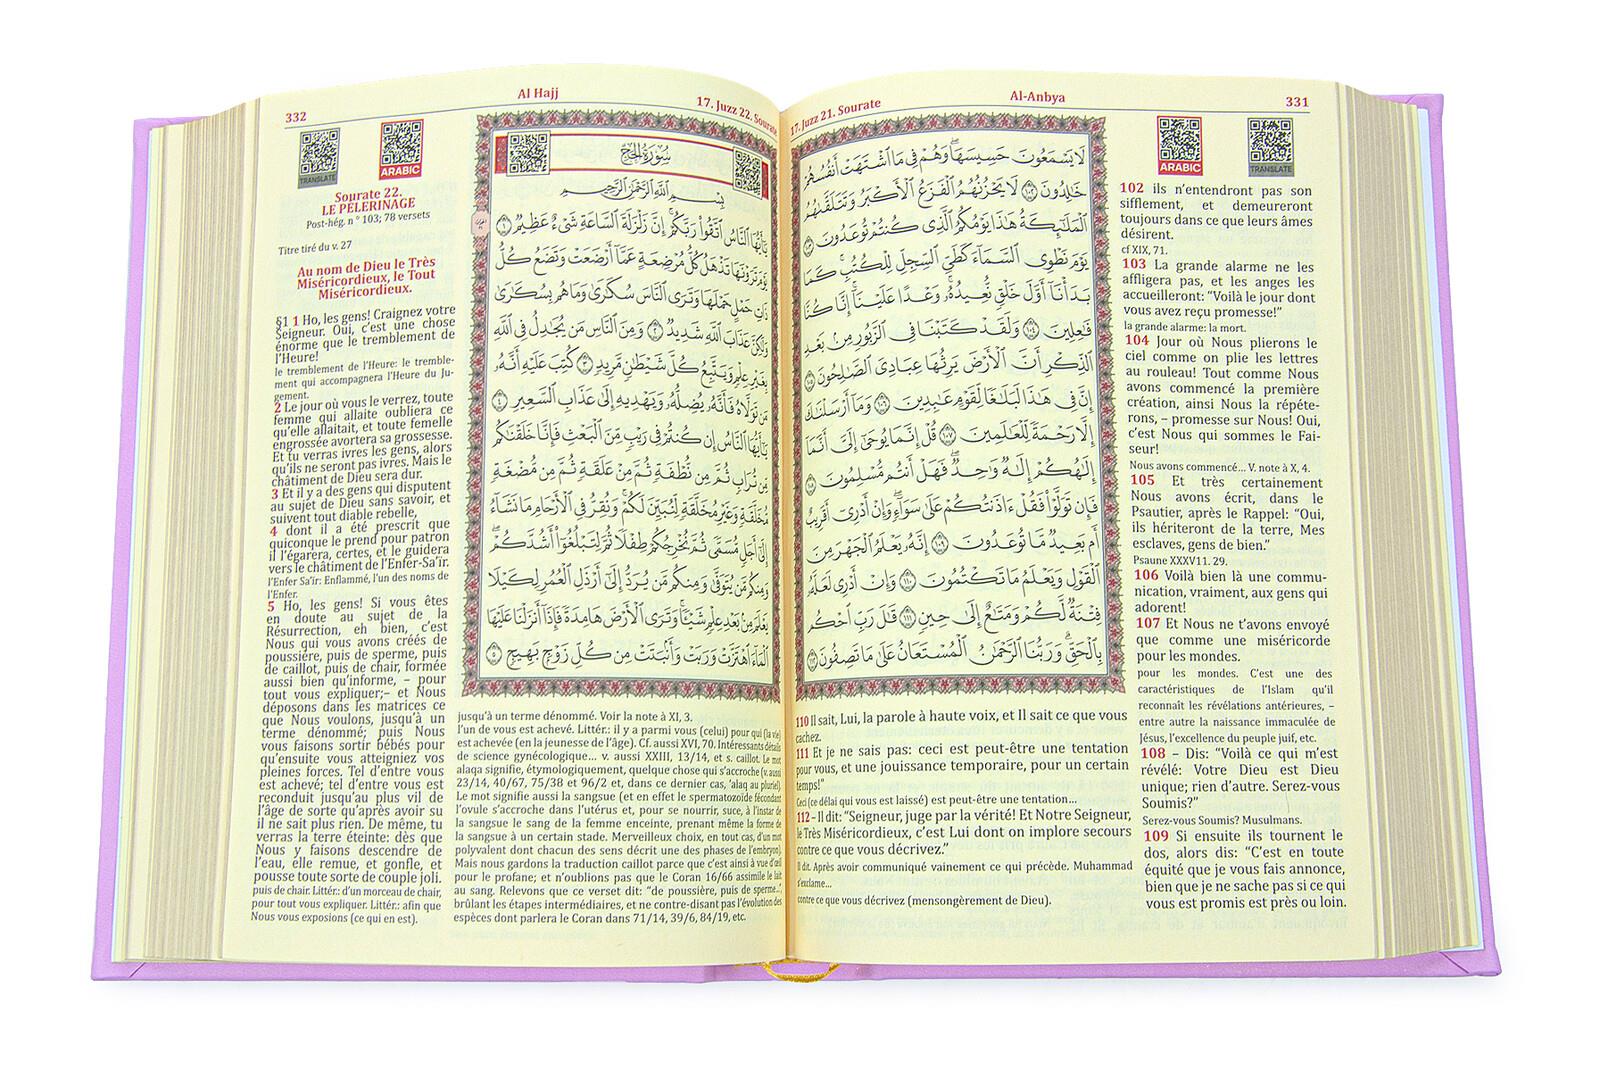 17. Juzz 21. Sourate
Al-Anbya
331
ARABIC
TRANSLATE
لَا يَسْمَعُونَ حَسِيسَهَا وَهُمْ فِي مَا اشْتَهَتْ أَنفُسُهُمْ
خَالِدُونَ ١٠٢ لَا يَحْزُنُهُمُ الْفَزَعُ الْأَكْبَرُ وَتَتَلَقَّاهُمُ
الْمَلَائِكَةُ هَذَا يَوْمُكُمُ الَّذِي كُنتُمْ تُوعَدُونَ ١٠٣
يَوْمَ نَطْوِي السَّمَاءَ كَطَيِّ السِّجِلِّ لِلْكُتُبِ كَمَا
بَدَأْنَا أَوَّلَ خَلْقٍ نُّعِيدُهُ وَعْدًا عَلَيْنَا إِنَّا كُنَّا
فَاعِلِينَ ١٠٤ وَلَقَدْ كَتَبْنَا فِي الزَّبُورِ مِن بَعْدِ
الذِّكْرِ أَنَّ الْأَرْضَ يَرِثُهَا عِبَادِيَ الصَّالِحُونَ ١٠٥
إِنَّ فِي هَذَا لَبَلَاغًا لِّقَوْمٍ عَابِدِينَ ١٠٦ وَمَا أَرْسَلْنَاكَ
إِلَّا رَحْمَةً لِّلْعَالَمِينَ ١٠٧ قُلْ إِنَّمَا يُوحَى إِلَيَّ أَنَّمَا
إِلَهُكُمْ إِلَهٌ وَاحِدٌ فَهَلْ أَنتُم مُّسْلِمُونَ ١٠٨
فَإِن تَوَلَّوْا فَقُلْ ءَاذَنتُكُمْ عَلَى سَوَاءٍ وَإِنْ أَدْرِي أَقَرِيبٌ
أَم بَعِيدٌ مَّا تُوعَدُونَ ١٠٩ إِنَّهُ يَعْلَمُ الْجَهْرَ مِنَ
الْقَوْلِ وَيَعْلَمُ مَا تَكْتُمُونَ ١١٠ وَإِنْ أَدْرِي لَعَلَّهُ
فِتْنَةٌ لَّكُمْ وَمَتَاعٌ إِلَى حِينٍ ١١١ قَالَ رَبِّ احْكُم
بِالْحَقِّ وَرَبُّنَا الرَّحْمَنُ الْمُسْتَعَانُ عَلَى مَا تَصِفُونَ ١١٢
102 ils n’entendront pas son
sifflement, et demeureront
toujours dans ce que leurs âmes
désirent.
cf XIX, 71.
103 La grande alarme ne les
affligera pas, et les anges les
accueilleront: “Voilà le jour dont
vous avez reçu promesse!”
la grande alarme: la mort.
104 Jour où Nous plierons le
ciel comme on plie les lettres
au rouleau! Tout comme Nous
avons commencé la première
création, ainsi Nous la répéte-
rons, – promesse sur Nous! Oui,
c’est Nous qui sommes le Fai-
seur!
Nous avons commencé... V. note à X, 4.
105 Et très certainement
Nous avons écrit, dans le
Psautier, après le Rappel: “Oui,
ils hériteront de la terre, Mes
esclaves, gens de bien.”
Psaune XXXV11. 29.
106 Voilà bien là une commu-
nication, vraiment, aux gens qui
adorent!
107 Et Nous ne t’avons envoyé
que comme une miséricorde
pour les mondes.
pour les mondes. C’est une des
caractéristiques de l’Islam qu’il
reconnaît les révélations antérieures, –
entre autre la naissance immaculée de
Jésus, l’excellence du peuple juif, etc.
108 – Dis: “Voilà ce qui m’est
révélé: Votre Dieu est Dieu
unique; rien d’autre. Serez-vous
Soumis?”
Serez-vous Soumis? Musulmans.
109 Si ensuite ils tournent le
dos, alors dis: “C’est en toute
équité que je vous fais annonce,
bien que je ne sache pas si ce qui
vous est promis est près ou loin.
110 Il sait, Lui, la parole à haute voix, et Il sait ce que vous
cachez.
111 Et je ne sais pas: ceci est peut-être une tentation
pour vous, et une jouissance temporaire, pour un certain
temps!”
Ceci (ce délai qui vous est laissé) est peut-être une tentation...
112 – Il dit: “Seigneur, juge par la vérité! Et Notre Seigneur,
le Très Miséricordieux, c’est Lui dont on implore secours
contre ce que vous décrivez.”
Il dit. Après avoir communiqué vainement ce qui précède. Muhammad
s’exclame...
contre ce que vous décrivez (mensongèrement de Dieu).
332
Al Hajj
17. Juzz 22. Sourate
TRANSLATE
ARABIC
Sourate 22.
LE PÈLERINAGE
Post-hég. n° 103; 78 versets
Titre tiré du v. 27
Au nom de Dieu le Très
Miséricordieux, le Tout
Miséricordieux.
§1 1 Ho, les gens! Craignez votre
Seigneur. Oui, c’est une chose
énorme que le tremblement de
l’Heure!
le tremblement de l’Heure: le tremble-
ment qui accompagnera l’Heure du Ju-
gement.
2 Le jour où vous le verrez, toute
femme qui allaite oubliera ce
qu’elle allaitait, et toute femelle
engrossée avortera sa grossesse.
Et tu verras ivres les gens, alors
qu’ils ne seront pas ivres. Mais le
châtiment de Dieu sera dur.
3 Et il y a des gens qui disputent
au sujet de Dieu sans savoir, et
suivent tout diable rebelle,
4 dont il a été prescrit que
quiconque le prend pour patron
il l’égarera, certes, et le guidera
vers le châtiment de l’Enfer-Sa’ir.
l’Enfer Sa’ir: Enflammé, l’un des noms de
l’Enfer.
5 Ho, les gens! Si vous êtes
en doute au sujet de la
Résurrection, eh bien, c’est
Nous qui vous avons créés de
poussière, puis de sperme, puis
de caillot, puis de chair, formée
aussi bien qu’informe, – pour
tout vous expliquer;– et Nous
déposons dans les matrices ce
que Nous voulons, jusqu’à un
terme dénommé; puis Nous
vous faisons sortir bébés pour
qu’ensuite vous atteigniez vos
pleines forces. Tel d’entre vous
est achevé; tel d’entre vous est
reconduit jusqu’au plus vil de
l’âge de sorte qu’après avoir su
il ne sait plus rien. De même, tu
verras la terre éteinte: dès que
Nous y faisons descendre de
l’eau, elle remue, et gonfle, et
pousse toute sorte de couple joli.
puis de chair. Littér.: d’un morceau de chair,
pour tout vous expliquer. Littér.: afin que
Nous vous exposions (ce qui en est).
سُورَةُ الْحَجِّ
بِسْمِ اللَّهِ الرَّحْمَنِ الرَّحِيمِ
يَا أَيُّهَا النَّاسُ اتَّقُوا رَبَّكُمْ إِنَّ زَلْزَلَةَ السَّاعَةِ شَيْءٌ عَظِيمٌ ١
يَوْمَ تَرَوْنَهَا تَذْهَلُ كُلُّ مُرْضِعَةٍ عَمَّا أَرْضَعَتْ وَتَضَعُ كُلُّ
ذَاتِ حَمْلٍ حَمْلَهَا وَتَرَى النَّاسَ سُكَارَى وَمَا هُم بِسُكَارَى
وَلَكِنَّ عَذَابَ اللَّهِ شَدِيدٌ ٢ وَمِنَ النَّاسِ مَن يُجَادِلُ فِي اللَّهِ
بِغَيْرِ عِلْمٍ وَيَتَّبِعُ كُلَّ شَيْطَانٍ مَّرِيدٍ ٣ كُتِبَ عَلَيْهِ أَنَّهُ
مَن تَوَلَّاهُ فَأَنَّهُ يُضِلُّهُ وَيَهْدِيهِ إِلَى عَذَابِ السَّعِيرِ ٤
يَا أَيُّهَا النَّاسُ إِن كُنتُمْ فِي رَيْبٍ مِّنَ الْبَعْثِ فَإِنَّا خَلَقْنَاكُم
مِّن تُرَابٍ ثُمَّ مِن نُّطْفَةٍ ثُمَّ مِنْ عَلَقَةٍ ثُمَّ مِن مُّضْغَةٍ
مُّخَلَّقَةٍ وَغَيْرِ مُخَلَّقَةٍ لِّنُبَيِّنَ لَكُمْ وَنُقِرُّ فِي الْأَرْحَامِ مَا نَشَاءُ
إِلَى أَجَلٍ مُّسَمًّى ثُمَّ نُخْرِجُكُمْ طِفْلًا ثُمَّ لِتَبْلُغُوا أَشُدَّكُمْ
وَمِنكُم مَّن يُتَوَفَّى وَمِنكُم مَّن يُرَدُّ إِلَى أَرْذَلِ الْعُمُرِ لِكَيْلَا
يَعْلَمَ مِن بَعْدِ عِلْمٍ شَيْئًا وَتَرَى الْأَرْضَ هَامِدَةً فَإِذَا أَنزَلْنَا عَلَيْهَا
الْمَاءَ اهْتَزَّتْ وَرَبَتْ وَأَنبَتَتْ مِن كُلِّ زَوْجٍ بَهِيجٍ ٥
jusqu’à un terme dénommé. Voir la note à XI, 3.
l’un de vous est achevé. Littér.: il y a parmi vous (celui) pour qui (la vie)
est achevée (en la jeunesse de l’âge). Cf. aussi XVI, 70. Intéressants détails
de science gynécologique... v. aussi XXIII, 13/14, et s. caillot. Le mot
alaqa signifie, étymologiquement, quelque chose qui s’accroche (v. aussi
23/14, 40/67, 75/38 et 96/2 et, dans ce dernier cas, ‘alaq au pluriel).
Le mot signifie aussi la sangsue (et en effet le spermatozoïde fécondant
l’ovule s’accroche dans l’utérus et, pour se nourrir, suce, à l’instar de
la sangsue le sang de la femme enceinte, prenant même la forme de
la sangsue à un certain stade. Merveilleux choix, en tout cas, d’un mot
polyvalent dont chacun des sens décrit une des phases de l’embryon).
Mais nous gardons la traduction caillot parce que c’est ainsi à vue d’œil
pour le profane; et n’oublions pas que le Coran 16/66 assimile le lait
au sang. Relevons que ce verset dit: “de poussière, puis de sperme...”,
brûlant les étapes intermédiaires, et ne contre-disant pas l’évolution des
espèces dont parlera le Coran dans 71/14, 39/6, 84/19, etc.